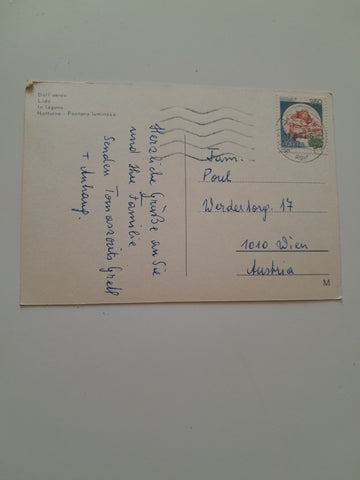 Dall'aereo
Lido
la laguna
Notturno - Fontana luminosa
Herzliche Grüße an Sie
und Ihre Familie
Senden Tomaszovits Grell
+ Anhang.
Fam.
Poul
Werdertorg. 17
1010 Wien
Austria
ITALIA
M